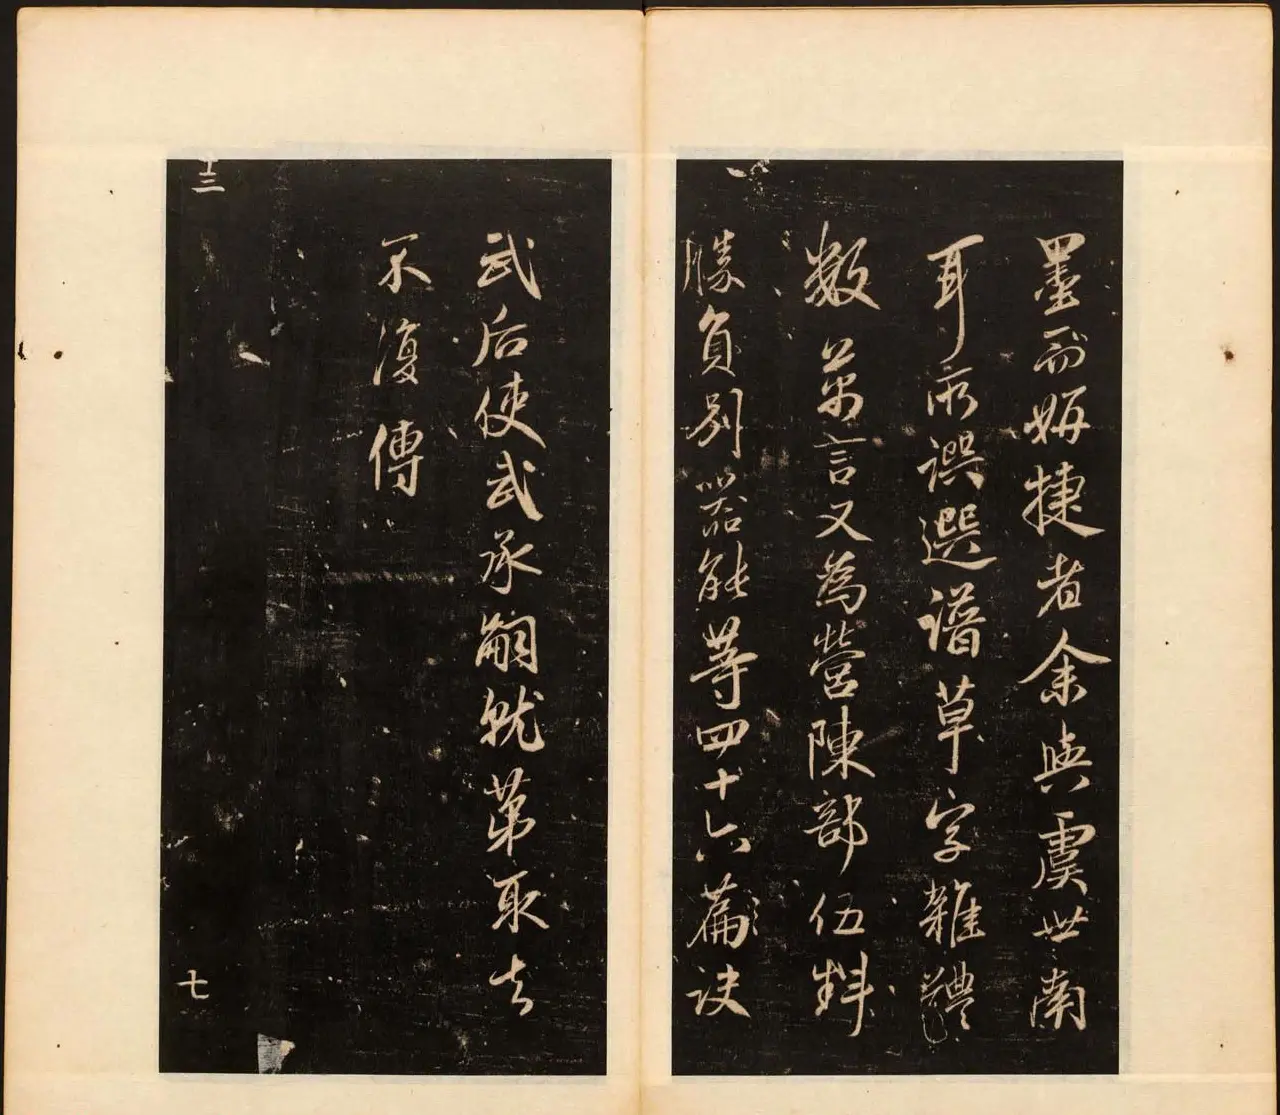 墨而妍捷者余與虞世南
耳所譔選譜草字雜體
數萬言又為營陳部伍料
勝負別器能等四十六篇訣
武后使武承嗣就第取去
不復傳
三
七